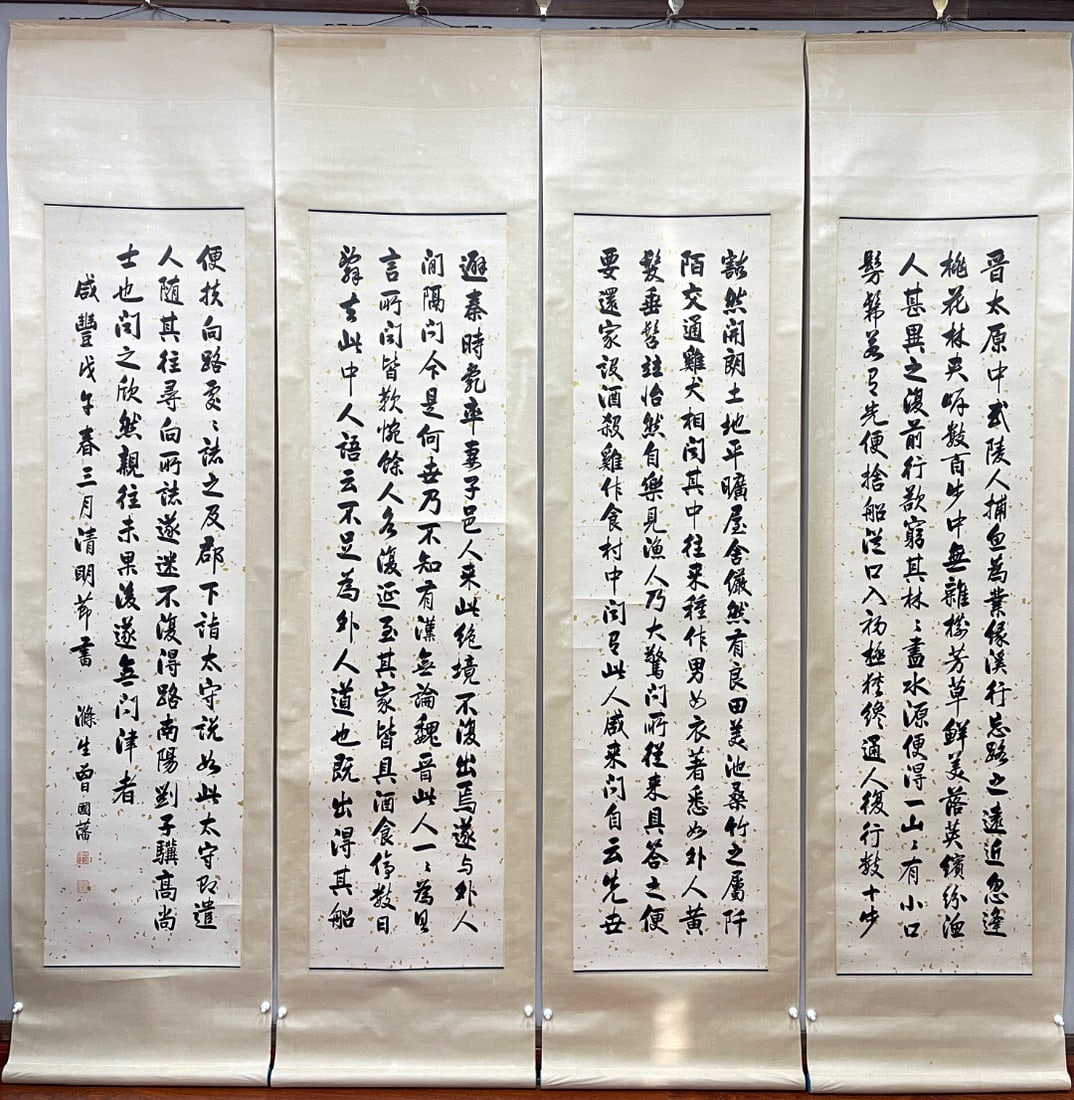 晉太原中武陵人捕魚為業緣溪行忘路之遠近忽逢
桃花林夾岸數百步中無雜樹芳草鮮美落英繽紛漁
人甚異之復前行欲窮其林〻盡水源便得一山〻有小口
髣髴若有光便捨船從口入初極狹終通人復行數十步
豁然開朗土地平曠屋舍儼然有良田美池桑竹之屬阡
陌交通雞犬相聞其中往來種作男女衣著悉如外人黃
髮垂髫竝怡然自樂見漁人乃大驚問所從來具答之便
要還家設酒殺雞作食村中聞有此人咸來問自云先世
避秦時亂率妻子邑人來此絕境不復出焉遂与外人
間隔問今是何世乃不知有漢無論魏晉此人一〻為具
言所聞皆歎惋餘人各復延至其家皆具酒食停數日
辭去此中人語云不足為外人道也既出得其船
便扶向路處〻誌之及郡下詣太守說如此太守即遣
人随其往尋向所誌遂迷不復得路南陽劉子驥高尚
士也聞之欣然親往未果後遂無問津者
咸豐戊午春三月清明節書 滌生曾國藩